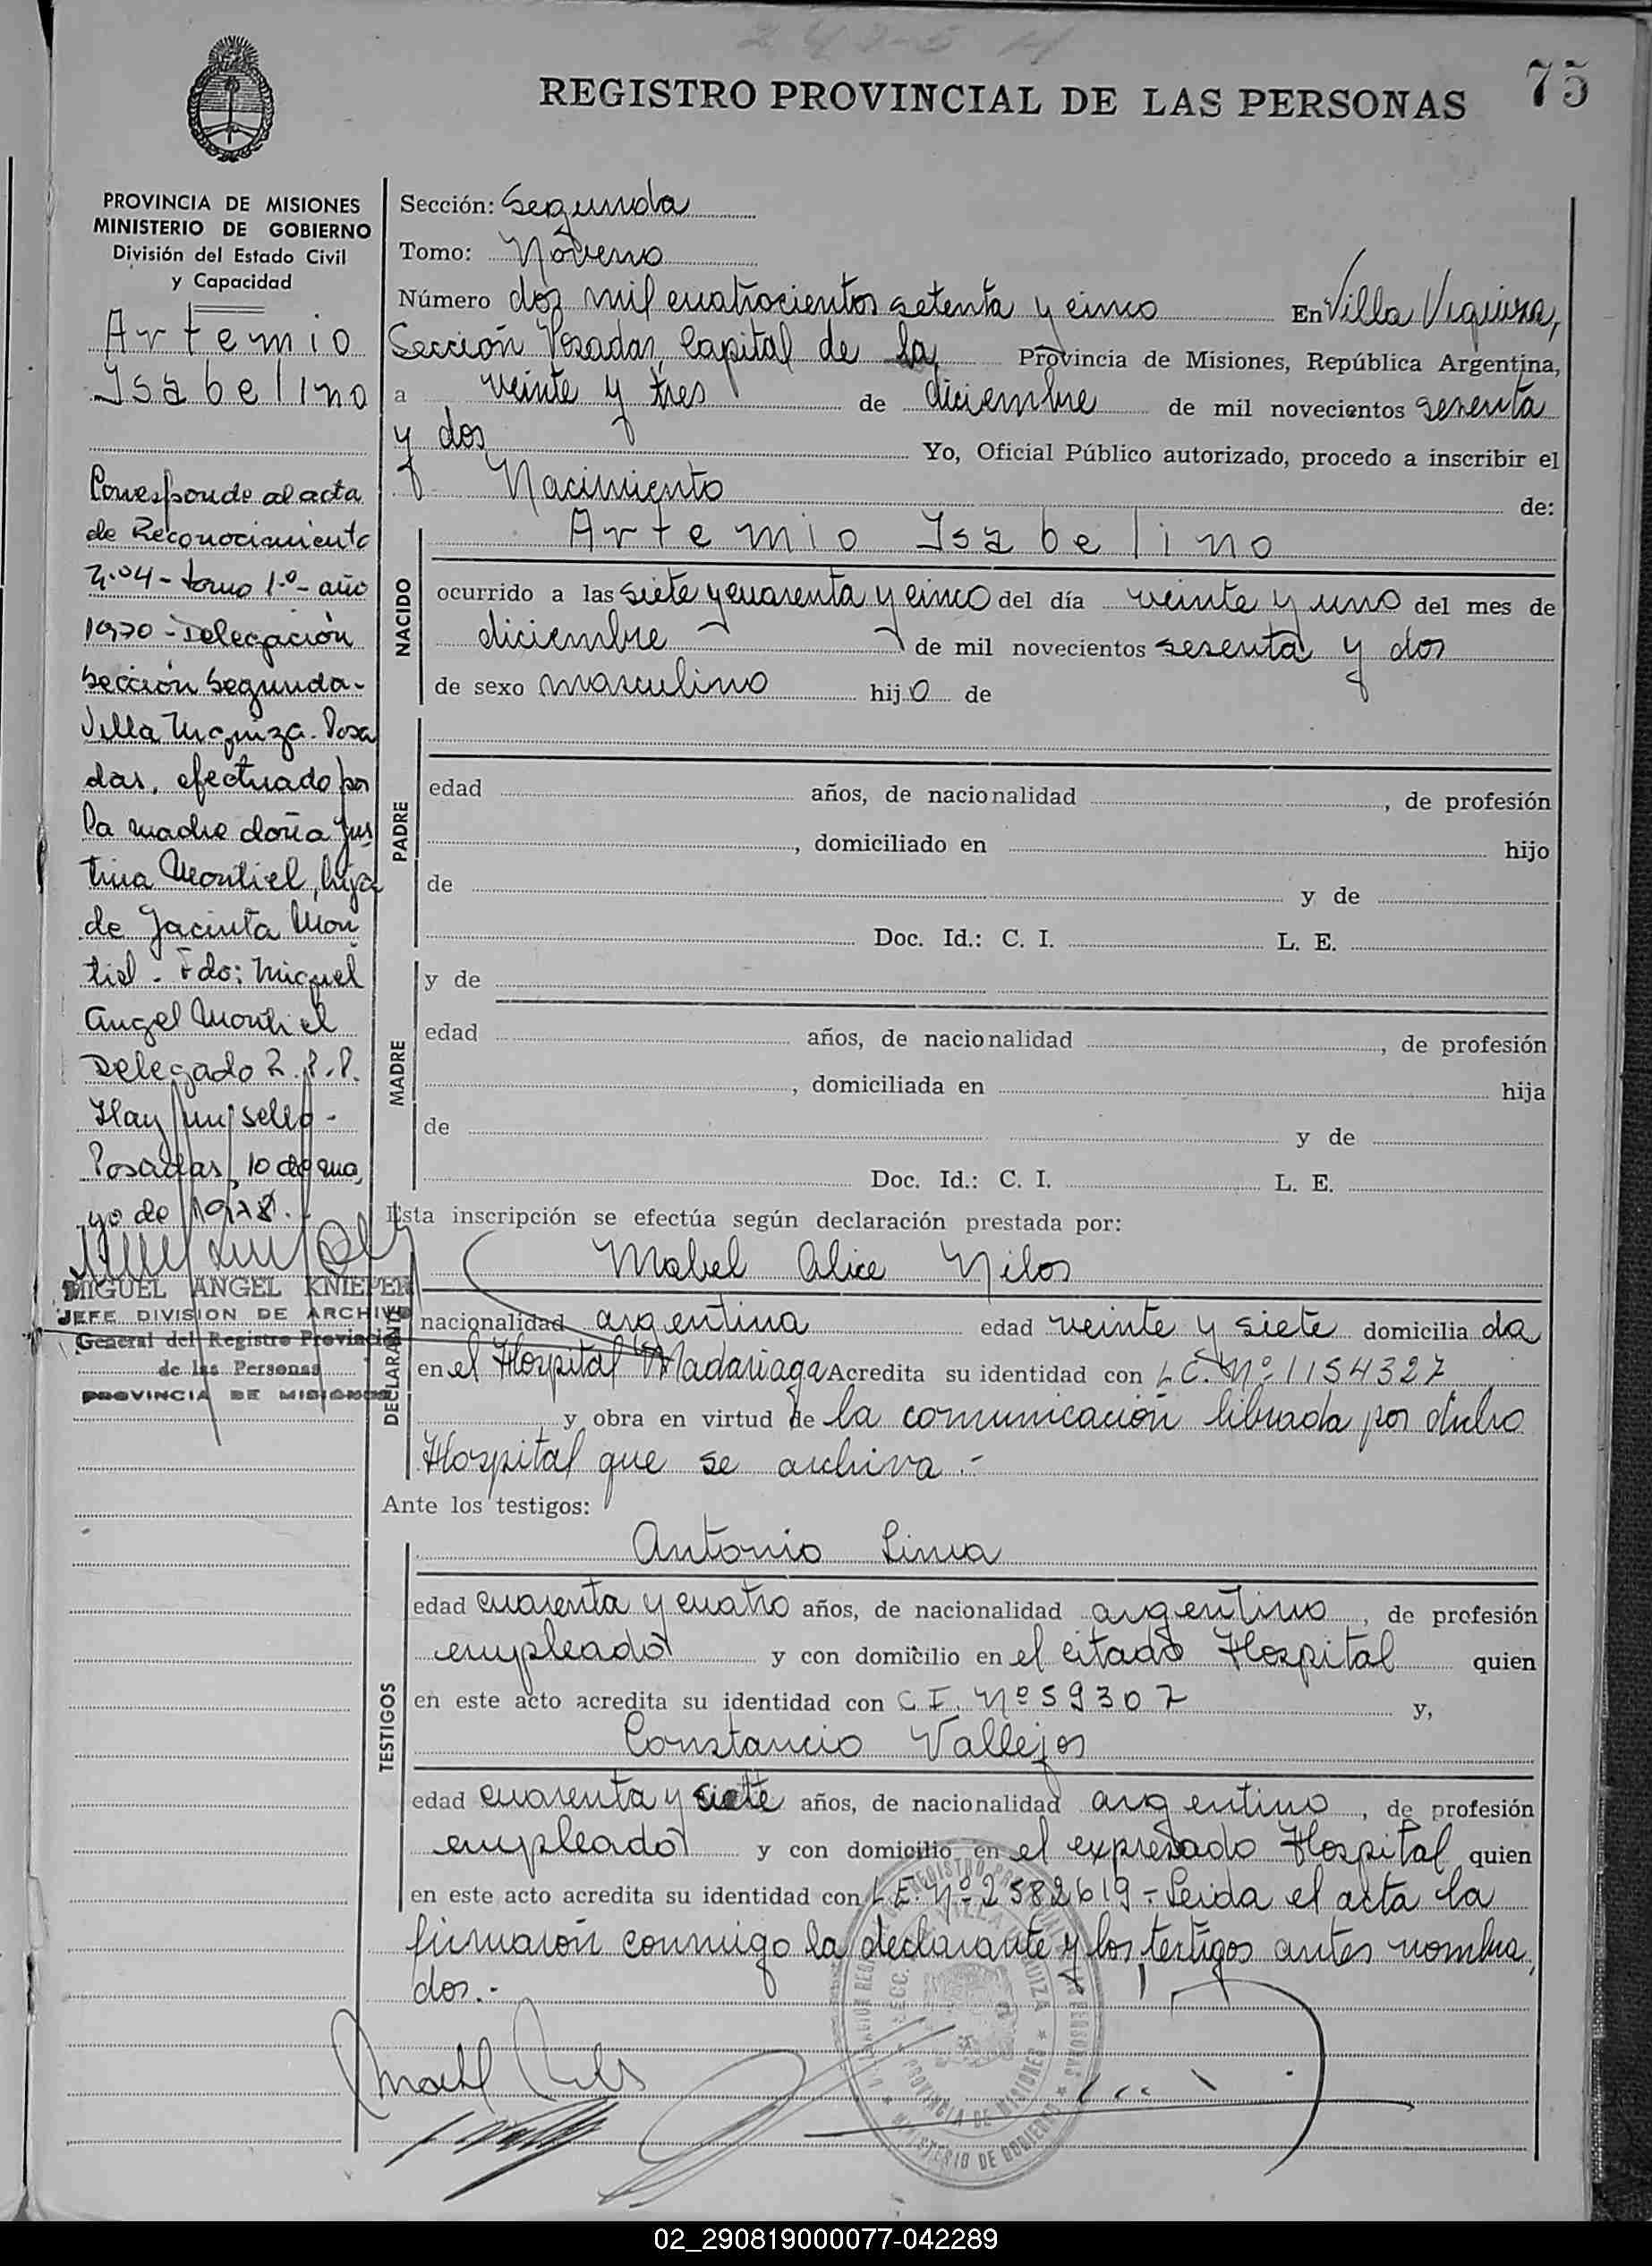 2475 H
75
REGISTRO PROVINCIAL DE LAS PERSONAS
PROVINCIA DE MISIONES
MINISTERIO DE GOBIERNO
División del Estado Civil
y Capacidad
Artemio
Isabelino
Corresponde al acta
de Reconocimiento
204 - tomo 1º - año
1970 - Delegación
Sección Segunda -
Villa Urquiza - Posa
das, efectuado por
la madre doña Jus
tina Montiel, hija
de Jacinta Mon
tiel - Fdo: Miguel
Angel Montiel
Delegado R.P.P.
Hay un sello -
Posadas, 10 de ma
yo de 1978.
MIGUEL ANGEL KNIEPER
JEFE DIVISION DE ARCHIVO
General del Registro Provincial
de las Personas
PROVINCIA DE MISIONES
Sección: Segunda
Tomo: Noveno
Número dos mil cuatrocientos setenta y cinco En Villa Urquiza,
Sección Posadas, Capital de la Provincia de Misiones, República Argentina,
a veinte y tres de diciembre de mil novecientos sesenta
y dos Yo, Oficial Público autorizado, procedo a inscribir el
Nacimiento de:
NACIDO
Artemio Isabelino
ocurrido a las siete y cuarenta y cinco del día veinte y uno del mes de
diciembre de mil novecientos sesenta y dos
de sexo masculino hijo de
PADRE
edad años, de nacionalidad , de profesión
, domiciliado en hijo
de y de
Doc. Id.: C. I. L. E.
MADRE
y de
edad años, de nacionalidad , de profesión
, domiciliada en hija
de y de
Doc. Id.: C. I. L. E.
Esta inscripción se efectúa según declaración prestada por:
DECLARANTE
Mabel Alice Nilos
nacionalidad argentina edad veinte y siete domicilia da
en el Hospital Madariaga Acredita su identidad con L.C. Nº 1154327
y obra en virtud de la comunicación librada por dicho
Hospital que se archiva.-
Ante los testigos:
TESTIGOS
Antonio Lima
edad cuarenta y cuatro años, de nacionalidad argentino, de profesión
empleado y con domicilio en el citado Hospital quien
en este acto acredita su identidad con C.I. Nº 59307 y,
Constancio Vallejos
edad cuarenta y siete años, de nacionalidad argentino, de profesión
empleado y con domicilio en el expresado Hospital quien
en este acto acredita su identidad con L.E. Nº 2582619 - Leida el acta la
firmaron conmigo la declarante y los testigos antes nombra
dos.-
02_290819000077-042289